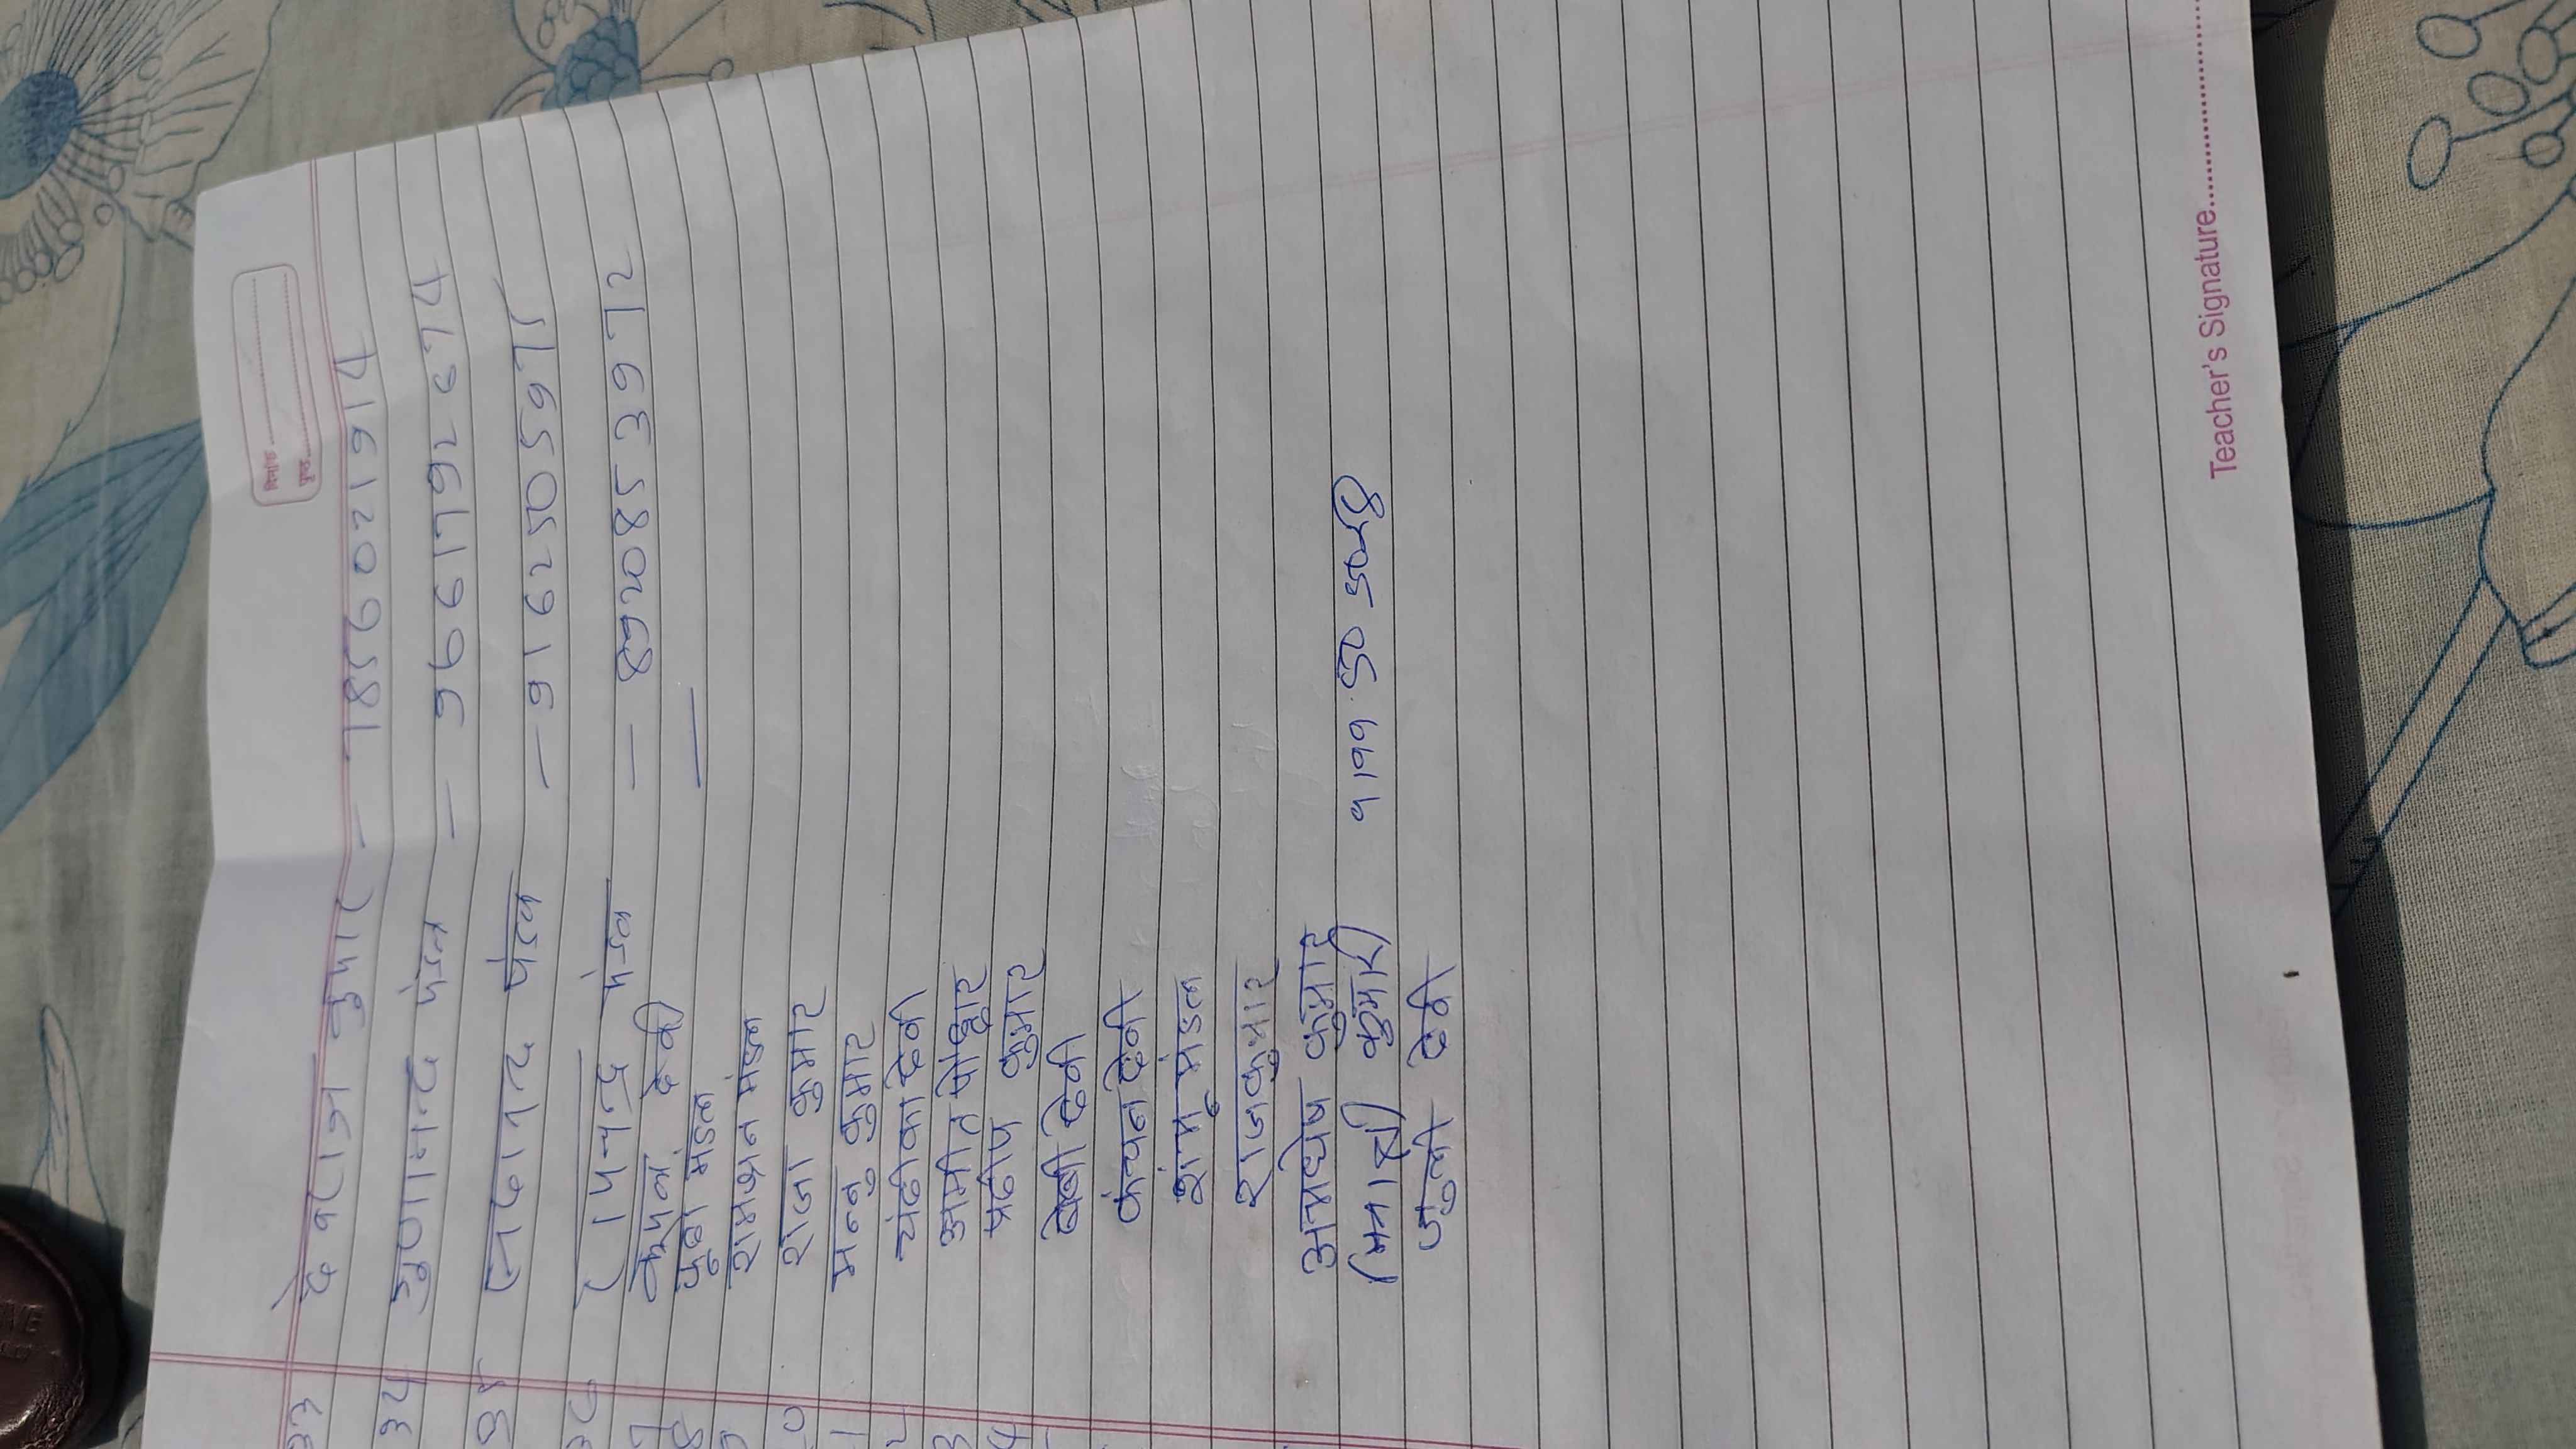 दिनांक
पृष्ठ
33 देवराज कुमार - 7856021914
34 गुणानन्द मंडल - 9661792674
सदानन्द मंडल - 916250597
रामचन्द्र मंडल - 8920853972
देवी
पूजा मंडल
रामधन मंडल
राजा कुमार
मन्नु कुमार
चंद्रीका देवी
अमीत पोद्दार
प्रदीप कुमार
बेबी देवी
कंचन देवी
शंभू मंडल
राजकुमार
अमधेष कुमार
कुमार) 9199 50 50
जुली देवी
Teacher's Signature